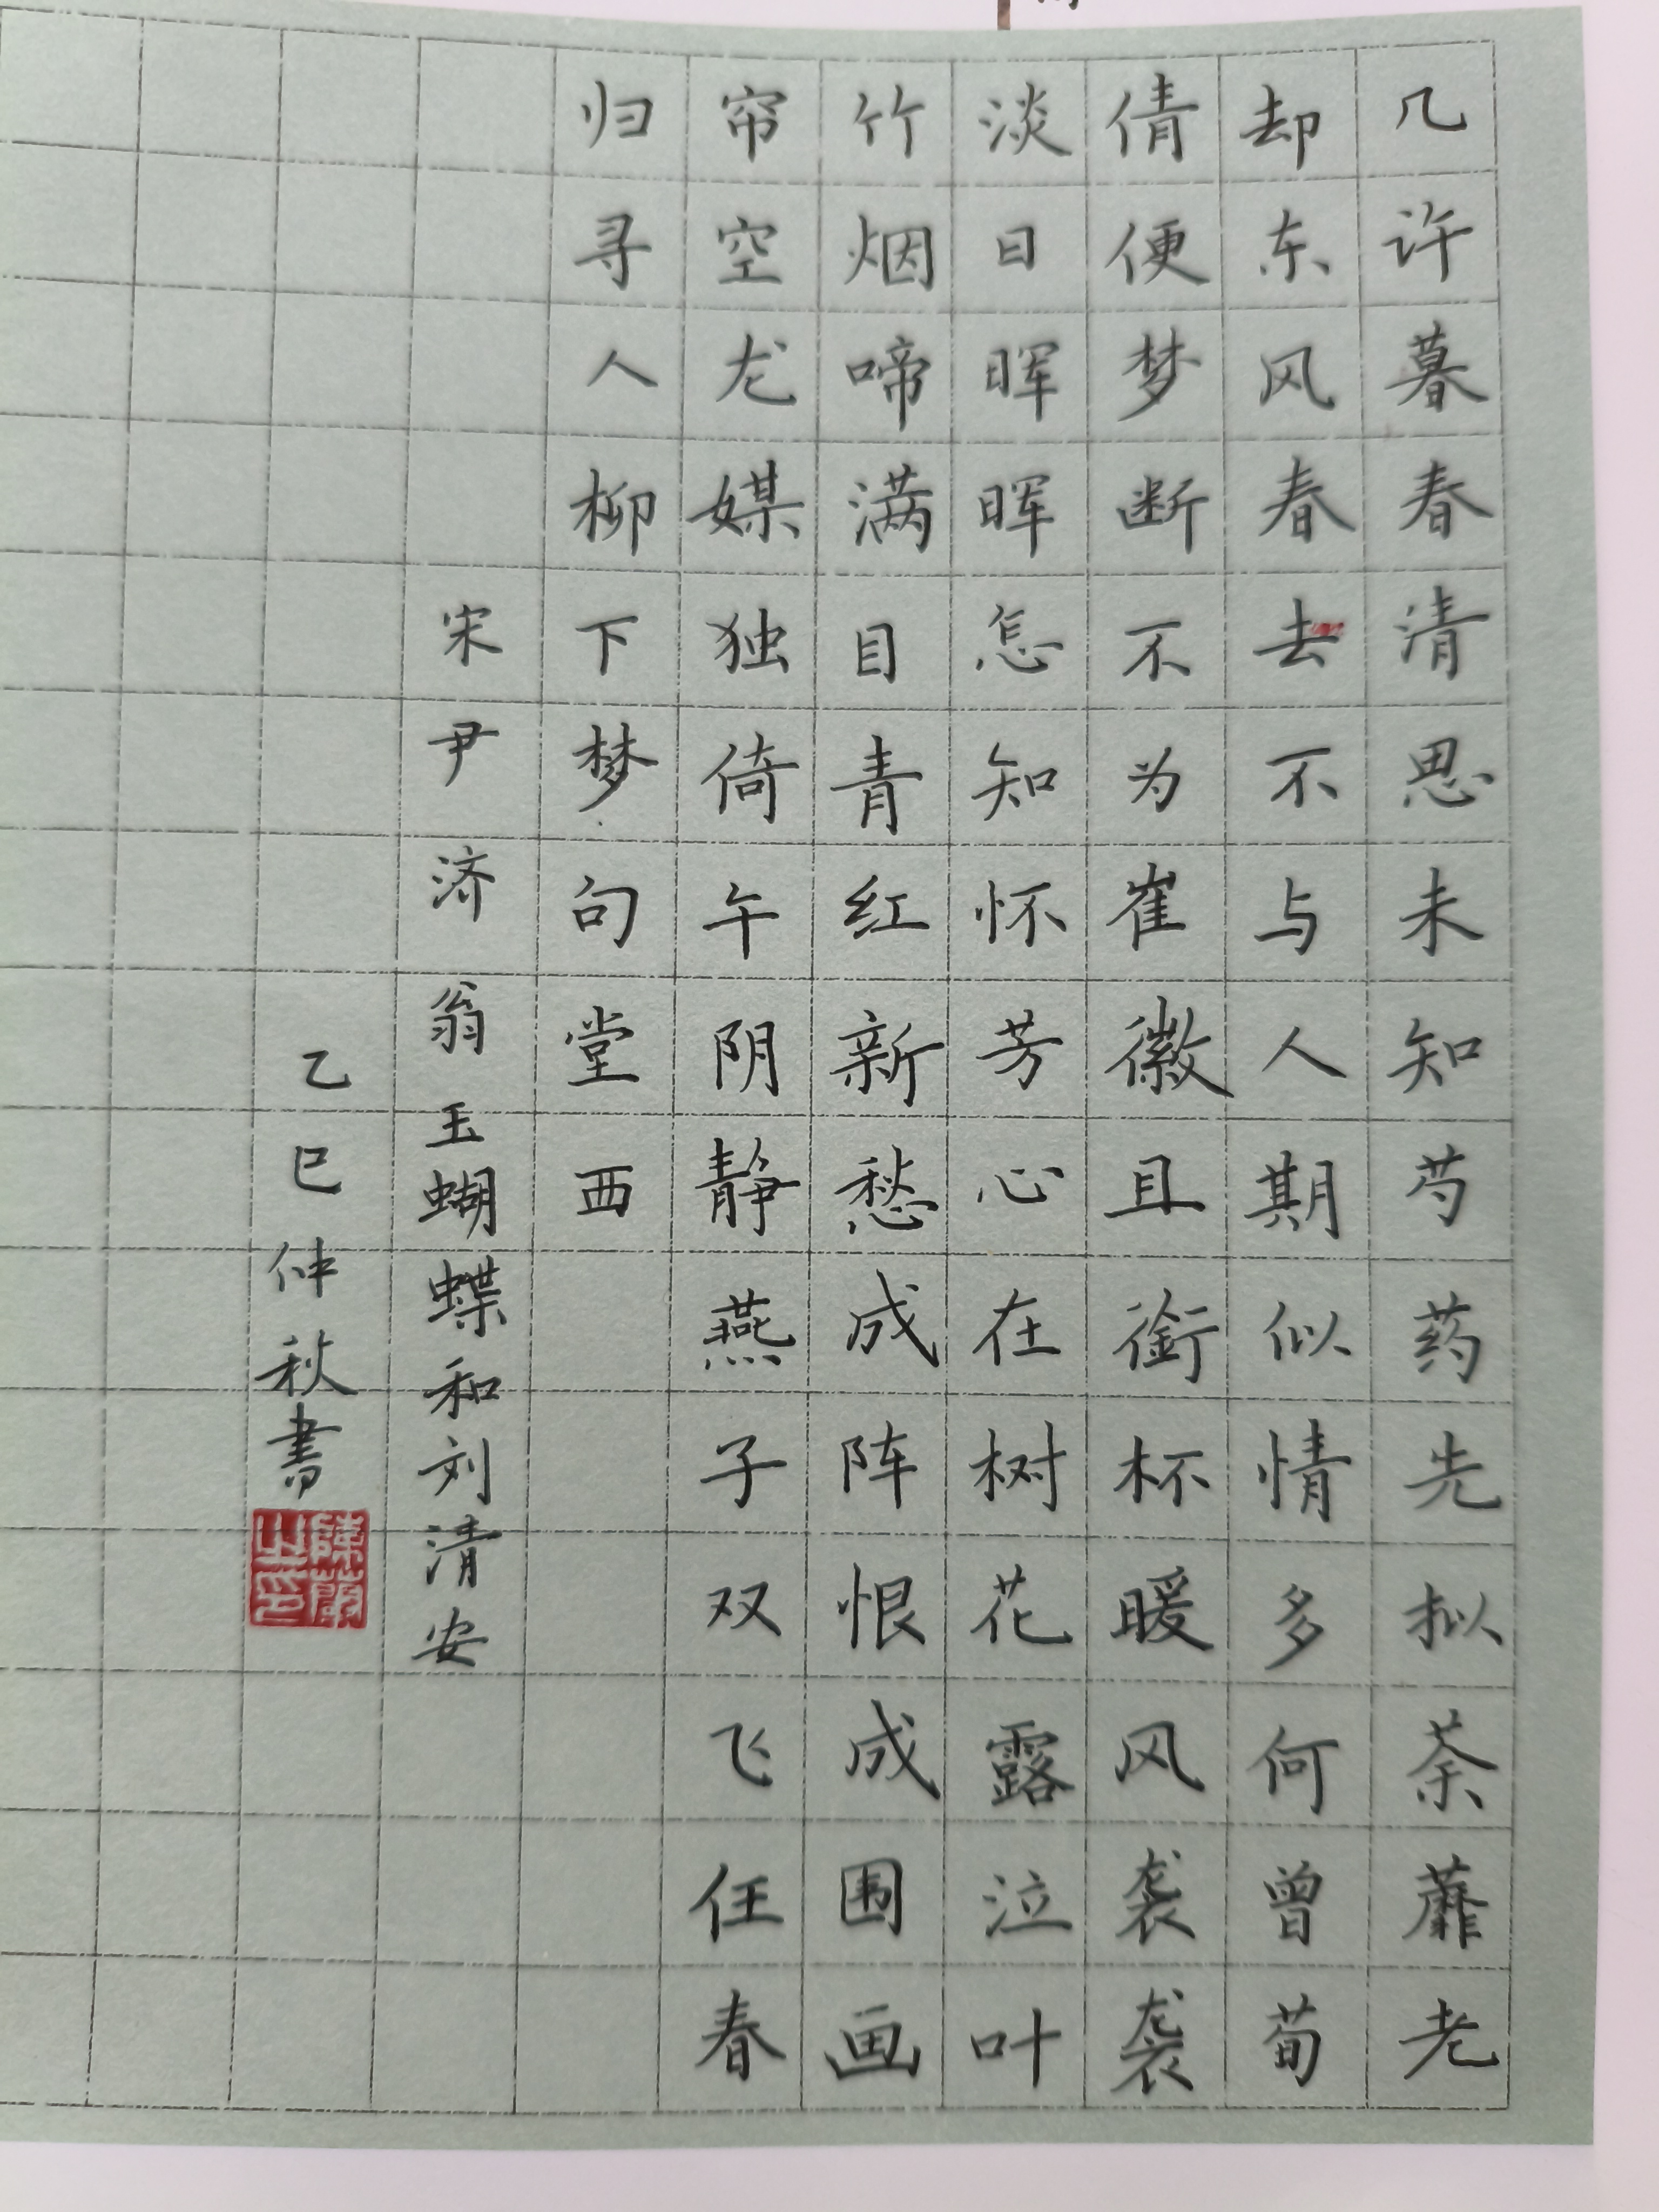 几许暮春清思未知芍药先拟荼蘼老
却东风春去不与人期似情多何曾荀
倩便梦断不为崔徽且衔杯暖风袭袭
淡日晖晖怎知怀芳心在树花露泣叶
竹烟啼满目青红新愁成阵恨成围画
帘空尨媒独倚午阴静燕子双飞任春
归寻人柳下梦句堂西
宋尹济翁玉蝴蝶和刘清安
乙巳仲秋書
陳蘭之印